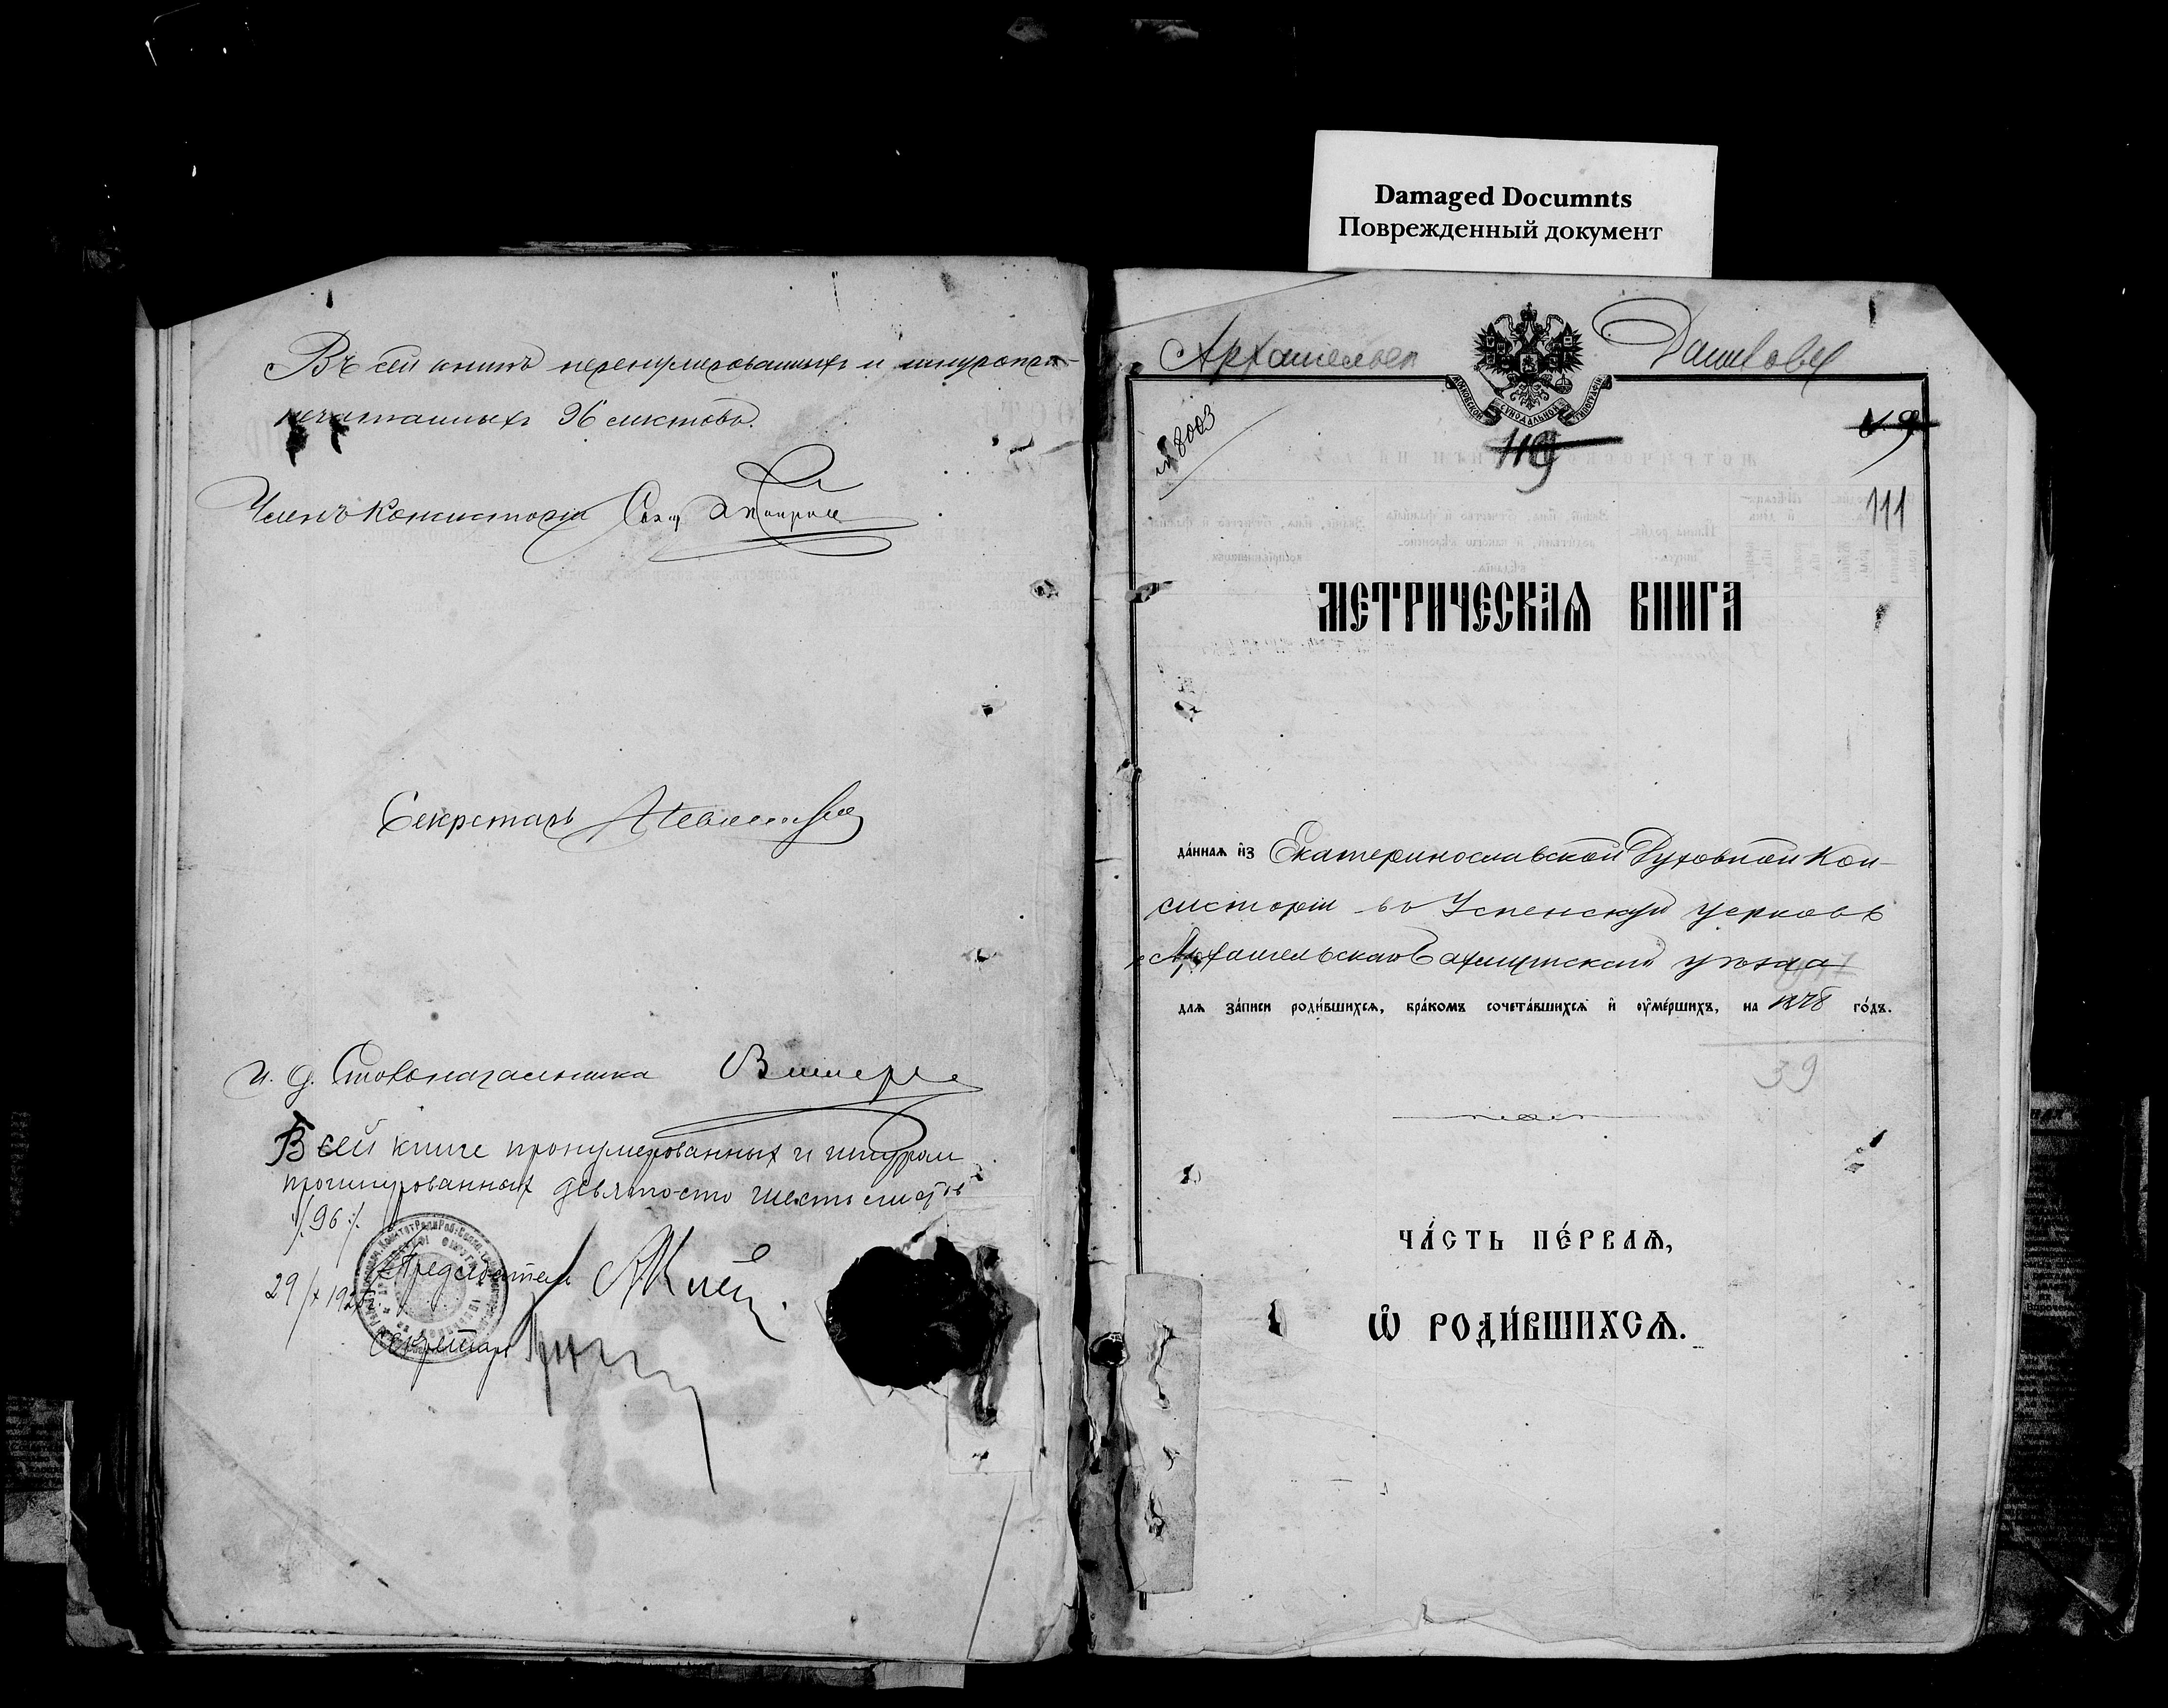 Damaged Documnts
Поврежденный документ
Въ сей книгѣ перенумерованныхъ и шнуропри-
печатанныхъ 96 листовъ.
Членъ Консисторіи
Секретарь
И. д. Столоначальника
В сей книге пронумерованных и шнуром
прошнурованных девяносто шесть листов
/.96./.
29/X 192
Председатель
Секретарь
МОСКОВСКОЙ СѴНОДАЛЬНОЙ ТИПОГРАФІИ
№ 8003
119
111
МЕТРИЧЕСКАѦ КНИГА
да́ннаѧ и҆з Екатеринославской Духовной Кон-
систоріи въ Успенскую церковь
с. Архангельскаго Бахмутскаго уѣзда
длѧ за́писи роди́вшихсѧ, бра́комъ сочета́вшихсѧ и҆ ѹ҆ме́ршихъ, на го́дъ.
39
ЧА́СТЬ ПЕ́РВАѦ,
Ѡ҆ РОДИ́ВШИХСѦ.